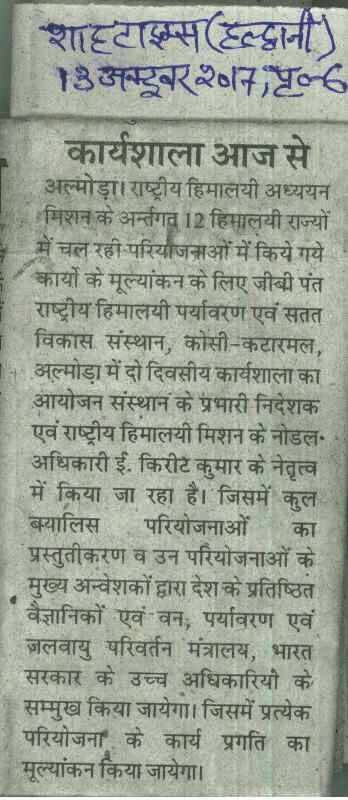 शाह टाइम्स (हल्द्वानी)
13 अक्टूबर 2017, पृ०-6
कार्यशाला आज से
अल्मोड़ा। राष्ट्रीय हिमालयी अध्ययन
मिशन के अर्न्तगत 12 हिमालयी राज्यों
में चल रही परियोजनाओं में किये गये
कार्यो के मूल्यांकन के लिए जीबी पंत
राष्ट्रीय हिमालयी पर्यावरण एवं सतत
विकास संस्थान, कोसी-कटारमल,
अल्मोड़ा में दो दिवसीय कार्यशाला का
आयोजन संस्थान के प्रभारी निदेशक
एवं राष्ट्रीय हिमालयी मिशन के नोडल
अधिकारी ई. किरीट कुमार के नेतृत्व
में किया जा रहा है। जिसमें कुल
बयालिस परियोजनाओं का
प्रस्तुतीकरण व उन परियोजनाओं के
मुख्य अन्वेशकों द्वारा देश के प्रतिष्ठित
वैज्ञानिकों एवं वन, पर्यावरण एवं
जलवायु परिवर्तन मंत्रालय, भारत
सरकार के उच्च अधिकारियों के
सम्मुख किया जायेगा। जिसमें प्रत्येक
परियोजना के कार्य प्रगति का
मूल्यांकन किया जायेगा।